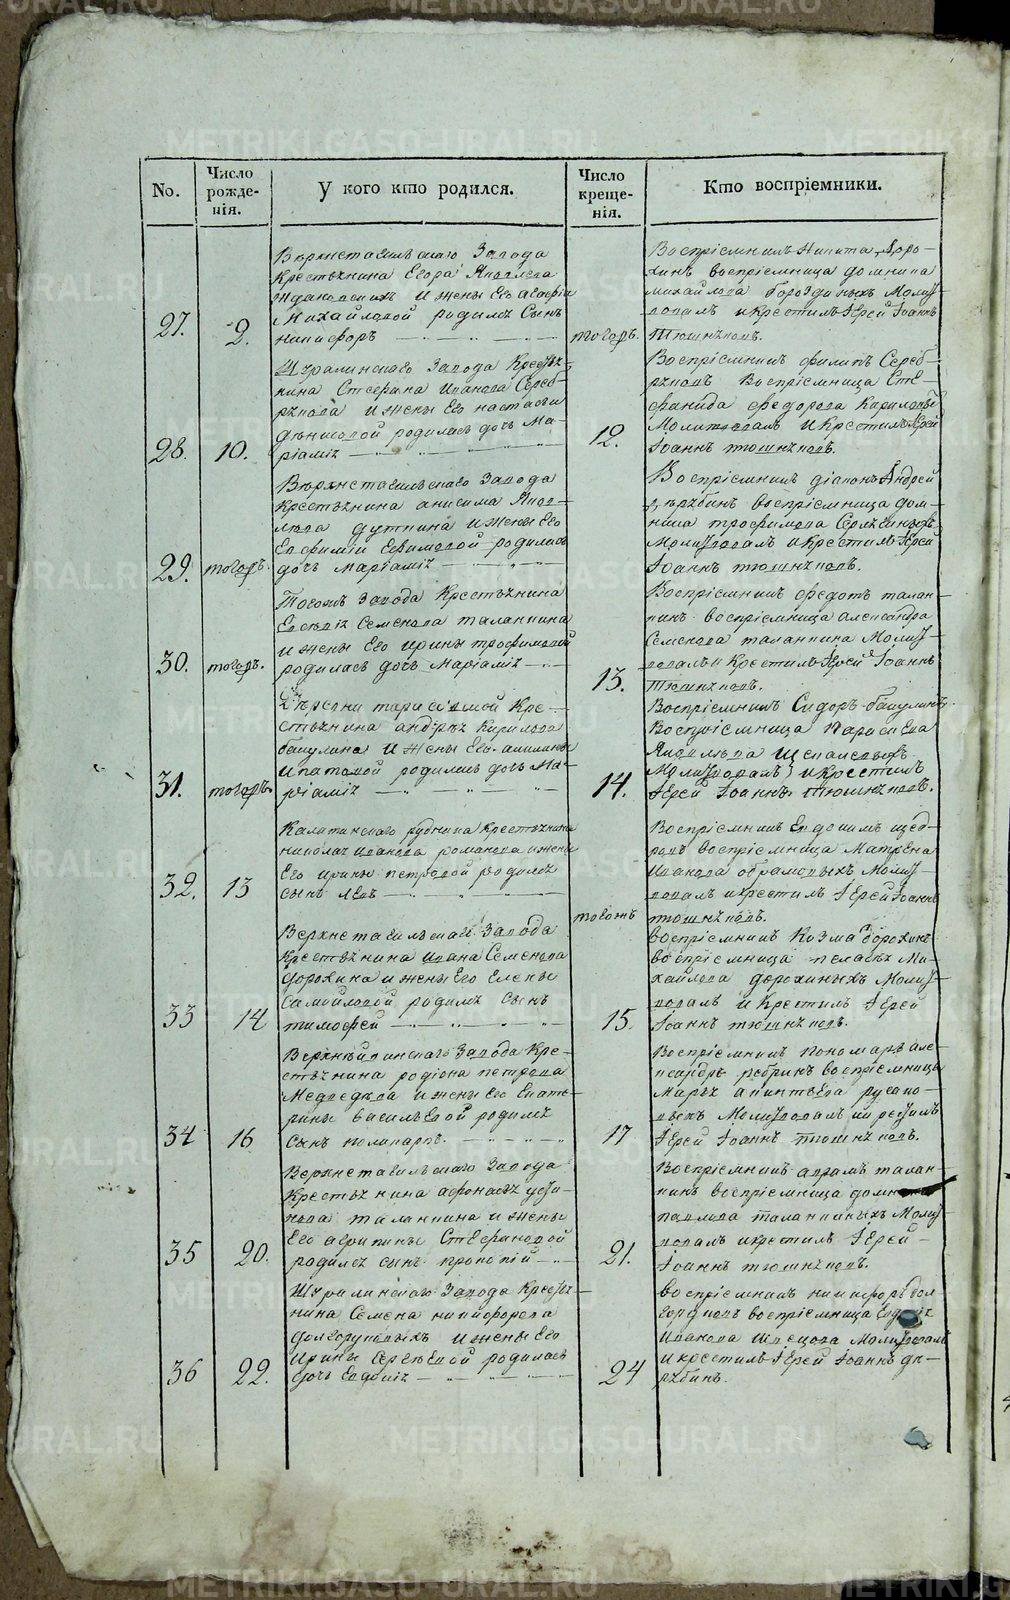 No.
Число рожде- нія.
У кого кто родился.
Число креще- нія.
Кто воспріемники.
27.
2.
Верхнетагильскаго Завода
крестьянина Егора Яковлева
Ждановскихъ и жены Его агафіи
Михайловой родился Сынъ
никифоръ
тогожъ.
Воспріемникъ Никита Доро-
хинъ воспріемница домника
михайлова бороздиныхъ Молит-
вовалъ и крестилъ Іерей Іоаннъ
Тюшняковъ.
28.
10.
Шуралинскаго Завода Кресть-
нина Стефана Иванова Сереб-
рякова и жены Его настасьи
родилась дочь Ма-
ріамія
12.
Воспріемникъ филипъ Сереб-
ряковъ Воспріемница Сте-
фанида федорова Кирилова
Молитвовалъ и Крестилъ Іерей
Іоаннъ тюшняковъ.
29.
тогожъ.
Верхнетагильскаго Завода
Крестьянина анисима Яков-
лева дуткина и жены Его
Евфиміи Ефимовой родилась
дочь Маріамія
Воспріемникъ діаконъ Андрей
дерябинъ воспріемница дом-
ника трофимова
Молитвовалъ и Крестилъ Іерей
Іоаннъ тюшняковъ.
30.
тогожъ.
Тогожъ Завода Крестьянина
Семенова таланкина
и жены Его ирины трофимовой
родилась дочь Маріамія
13.
Воспріемникъ федотъ талан-
кинъ воспріемница александра
Семенова таланкина Молит-
вовалъ и Крестилъ Іерей Іоаннъ
Тюшняковъ.
31.
тогожъ.
Деревни Кре-
стьянина андрея Кирилова
бакулина и жены Его
Ипатовой родилась дочь Ма-
ріамія
14.
Воспріемникъ Сидоръ бакулинъ
Воспріемница Параскева
Яковлева
Молитвовалъ и крестилъ
Іерей Іоаннъ Тюшняковъ.
32.
13
Калатинскаго рудника крестьянина
николая иванова романова и жены
Его ирины петровой родился
сынъ Левъ
тогожъ
Воспріемникъ Евдокимъ щед-
ровъ воспріемница Матрена
Иванова абрамовыхъ Молит-
вовалъ и крестилъ Іерей Іоаннъ
тюшняковъ.
33
14
Верхнетагильскаго Завода
Крестьянина Ивана Семенова
дорохина и жены Его Елены
Самойловой родился Сынъ
тимофей
15.
воспріемникъ Козма дорохинъ
воспріемница пелагея Ми-
хайлова дорохиныхъ Молит-
вовалъ и Крестилъ Іерей
Іоаннъ тюшняковъ.
34
16
Верхнейвинскаго Завода Кре-
стьянина родіона петрова
Медведева и жены Его Екате-
рины васильевой родился
Сынъ поликарпъ.
17
Воспріемникъ пономарь але-
ксандръ ребринъ воспріемница
Марья русако-
выхъ Молитвовалъ и крестилъ
Іерей Іоаннъ тюшняковъ.
35
20.
Верхнетагильскаго Завода
Крестьянина афонасья усти-
нова таланкина и жены
Его агрипины Стефановой
родился сынъ прокопій
21.
Воспріемникъ абрамъ талан-
кинъ воспріемница домника
павлова таланкиныхъ Молит-
вовалъ и крестилъ Іерей
Іоаннъ тюшняковъ.
36
22.
Шуралинскаго Завода Крестья-
нина Семена никифорова
долгоруковыхъ и жены Его
Ирины Сергеевой родилась
дочь Евдокія
24
воспріемникъ никифоръ дол-
горуковъ воспріемница Евдокія
Иванова Швецова Молитвовалъ
и крестилъ Іерей Іоаннъ де-
рябинъ.
METRIKI.GASO-URAL.RU